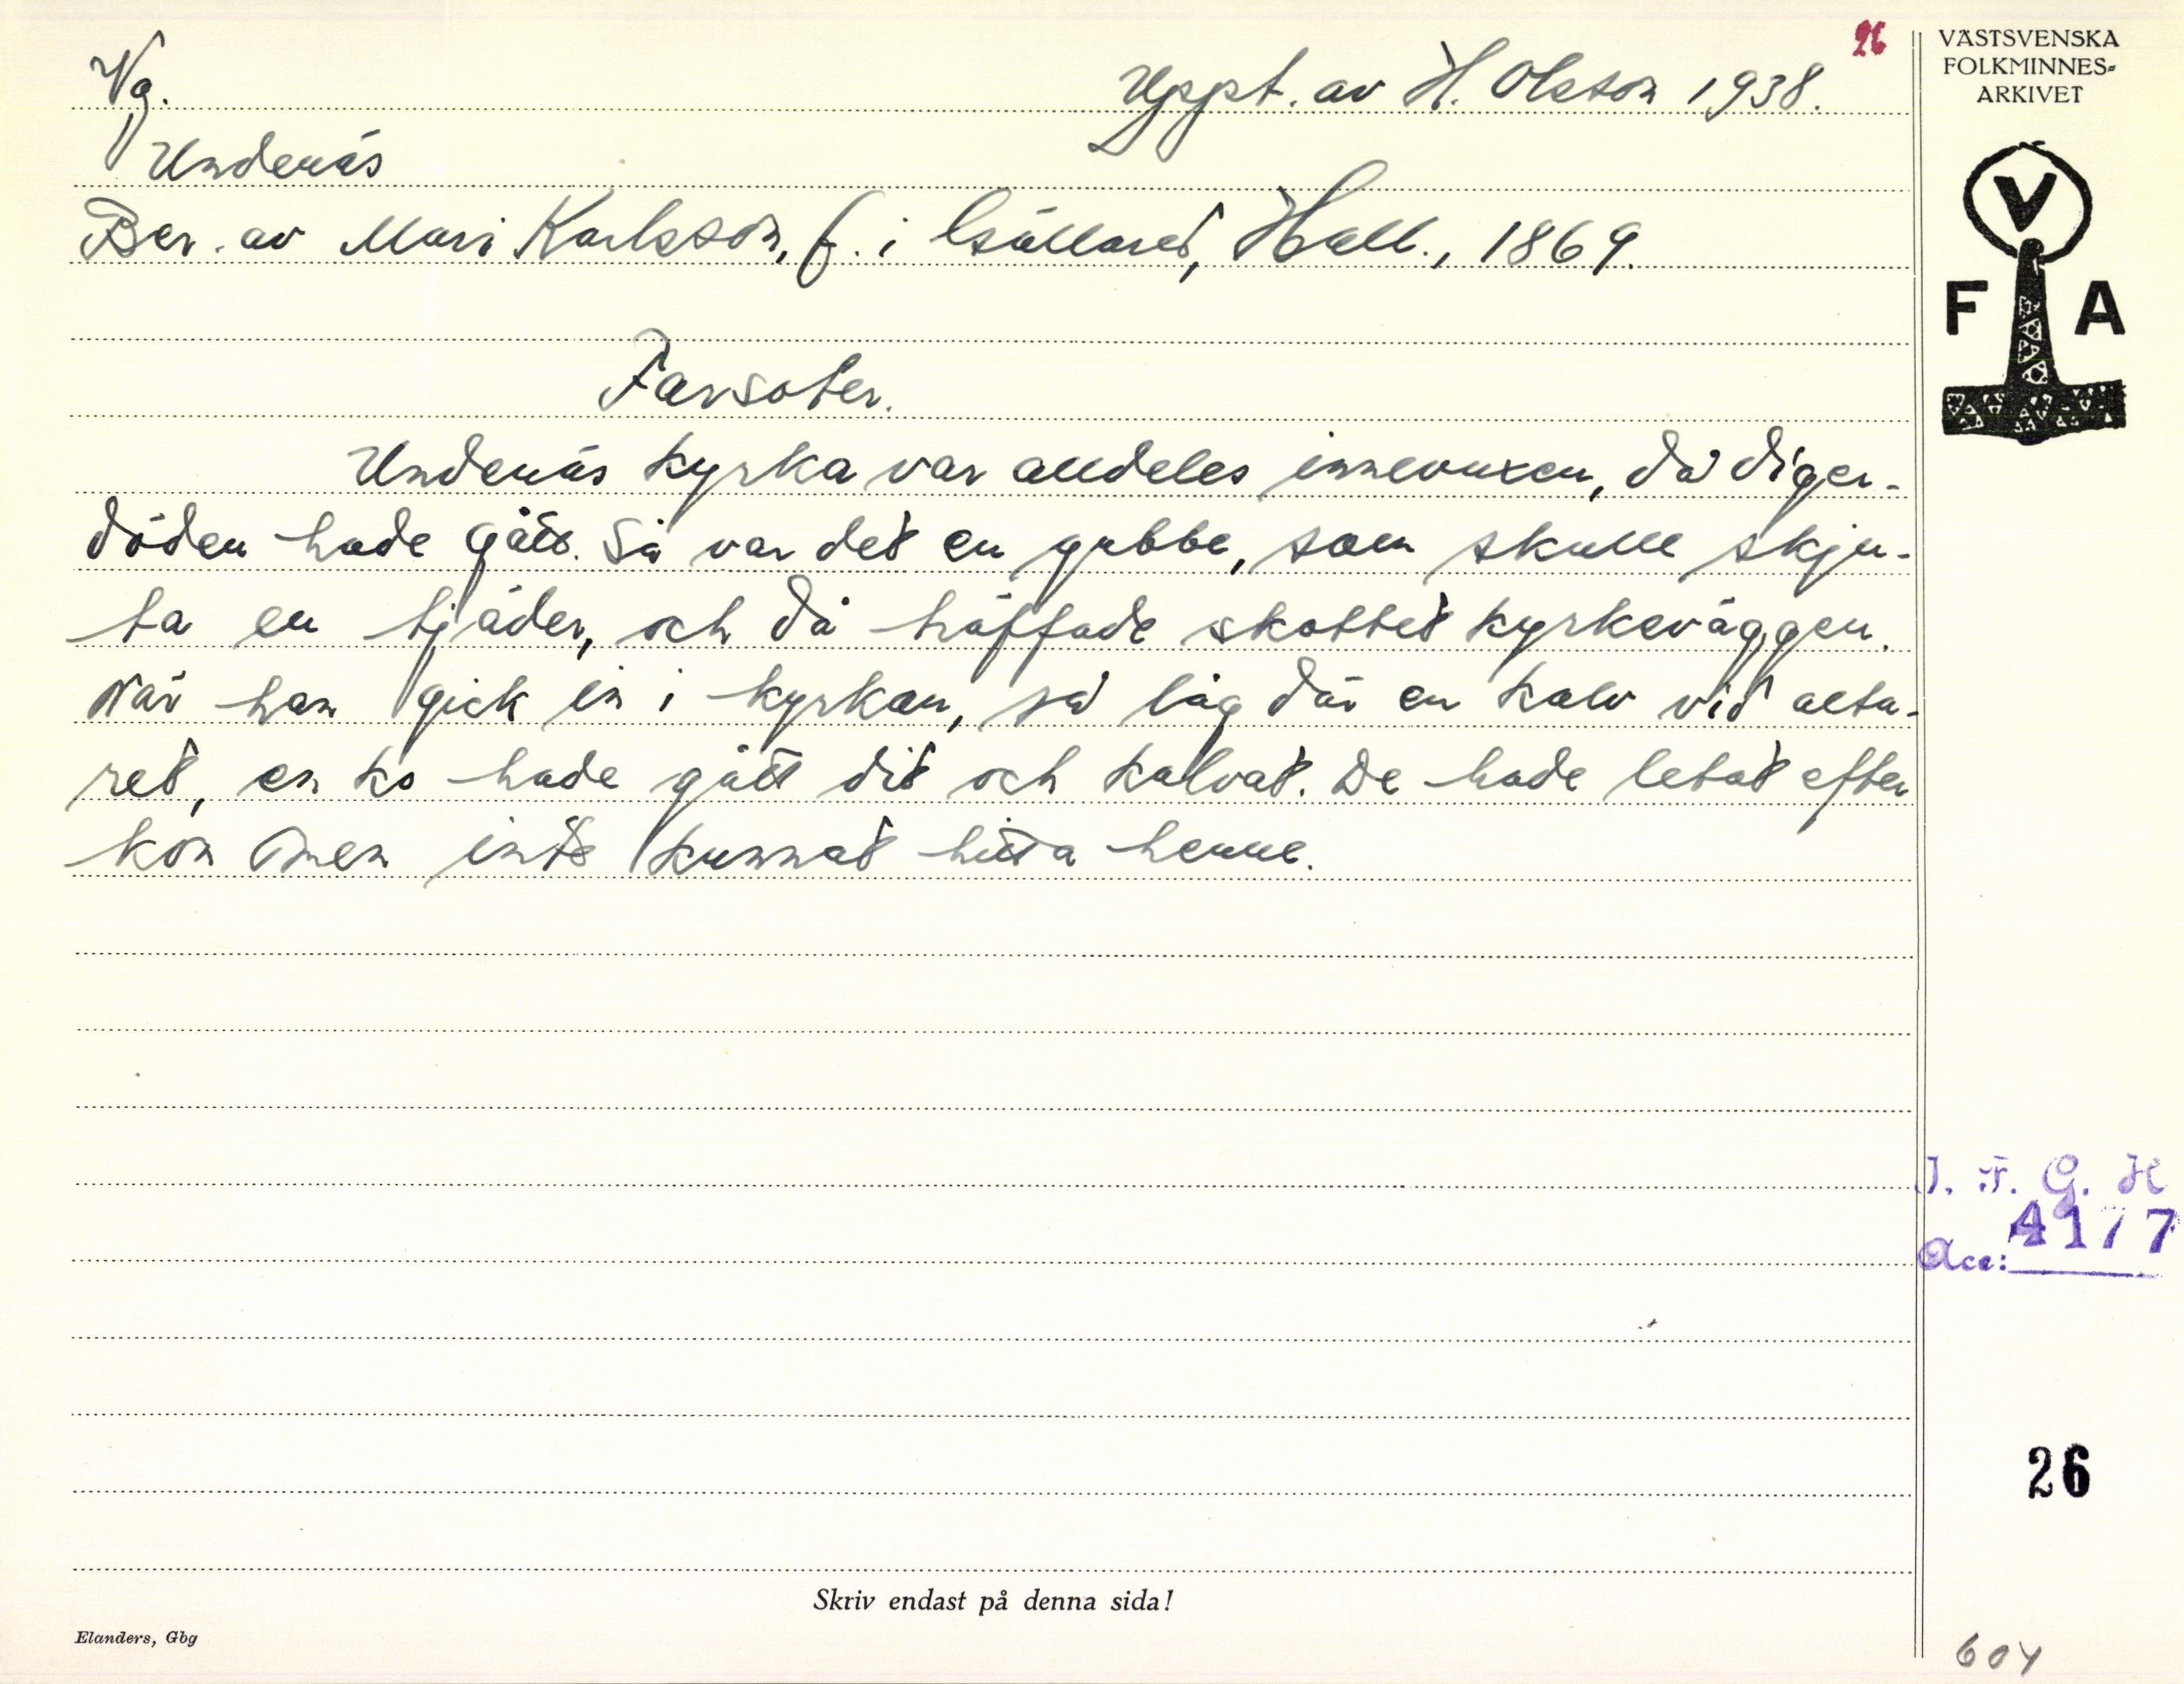 26
VÄSTSVENSKA
FOLKMINNES-
ARKIVET
V
F A
Vg. Uppt. av H. Olsson 1938.
Undenäs
Ber. av Mari Karlsson, f. i Gällared, Hall., 1869.
Farsoter.
Undenäs kyrka var alldeles innevuxen, då diger-
döden hade gått. Så var det en gubbe, som skulle skju-
ta en tjäder, och då träffade skottet kyrkeväggen.
När han gick in i kyrkan, så låg där en kalv vid alta-
ret, en ko hade gått dit och kalvat. De hade letat efter
kon men inte kunnat hitta henne.
I. F. G. H
Acc: 4177
26
Skriv endast på denna sida!
Elanders, Gbg
604